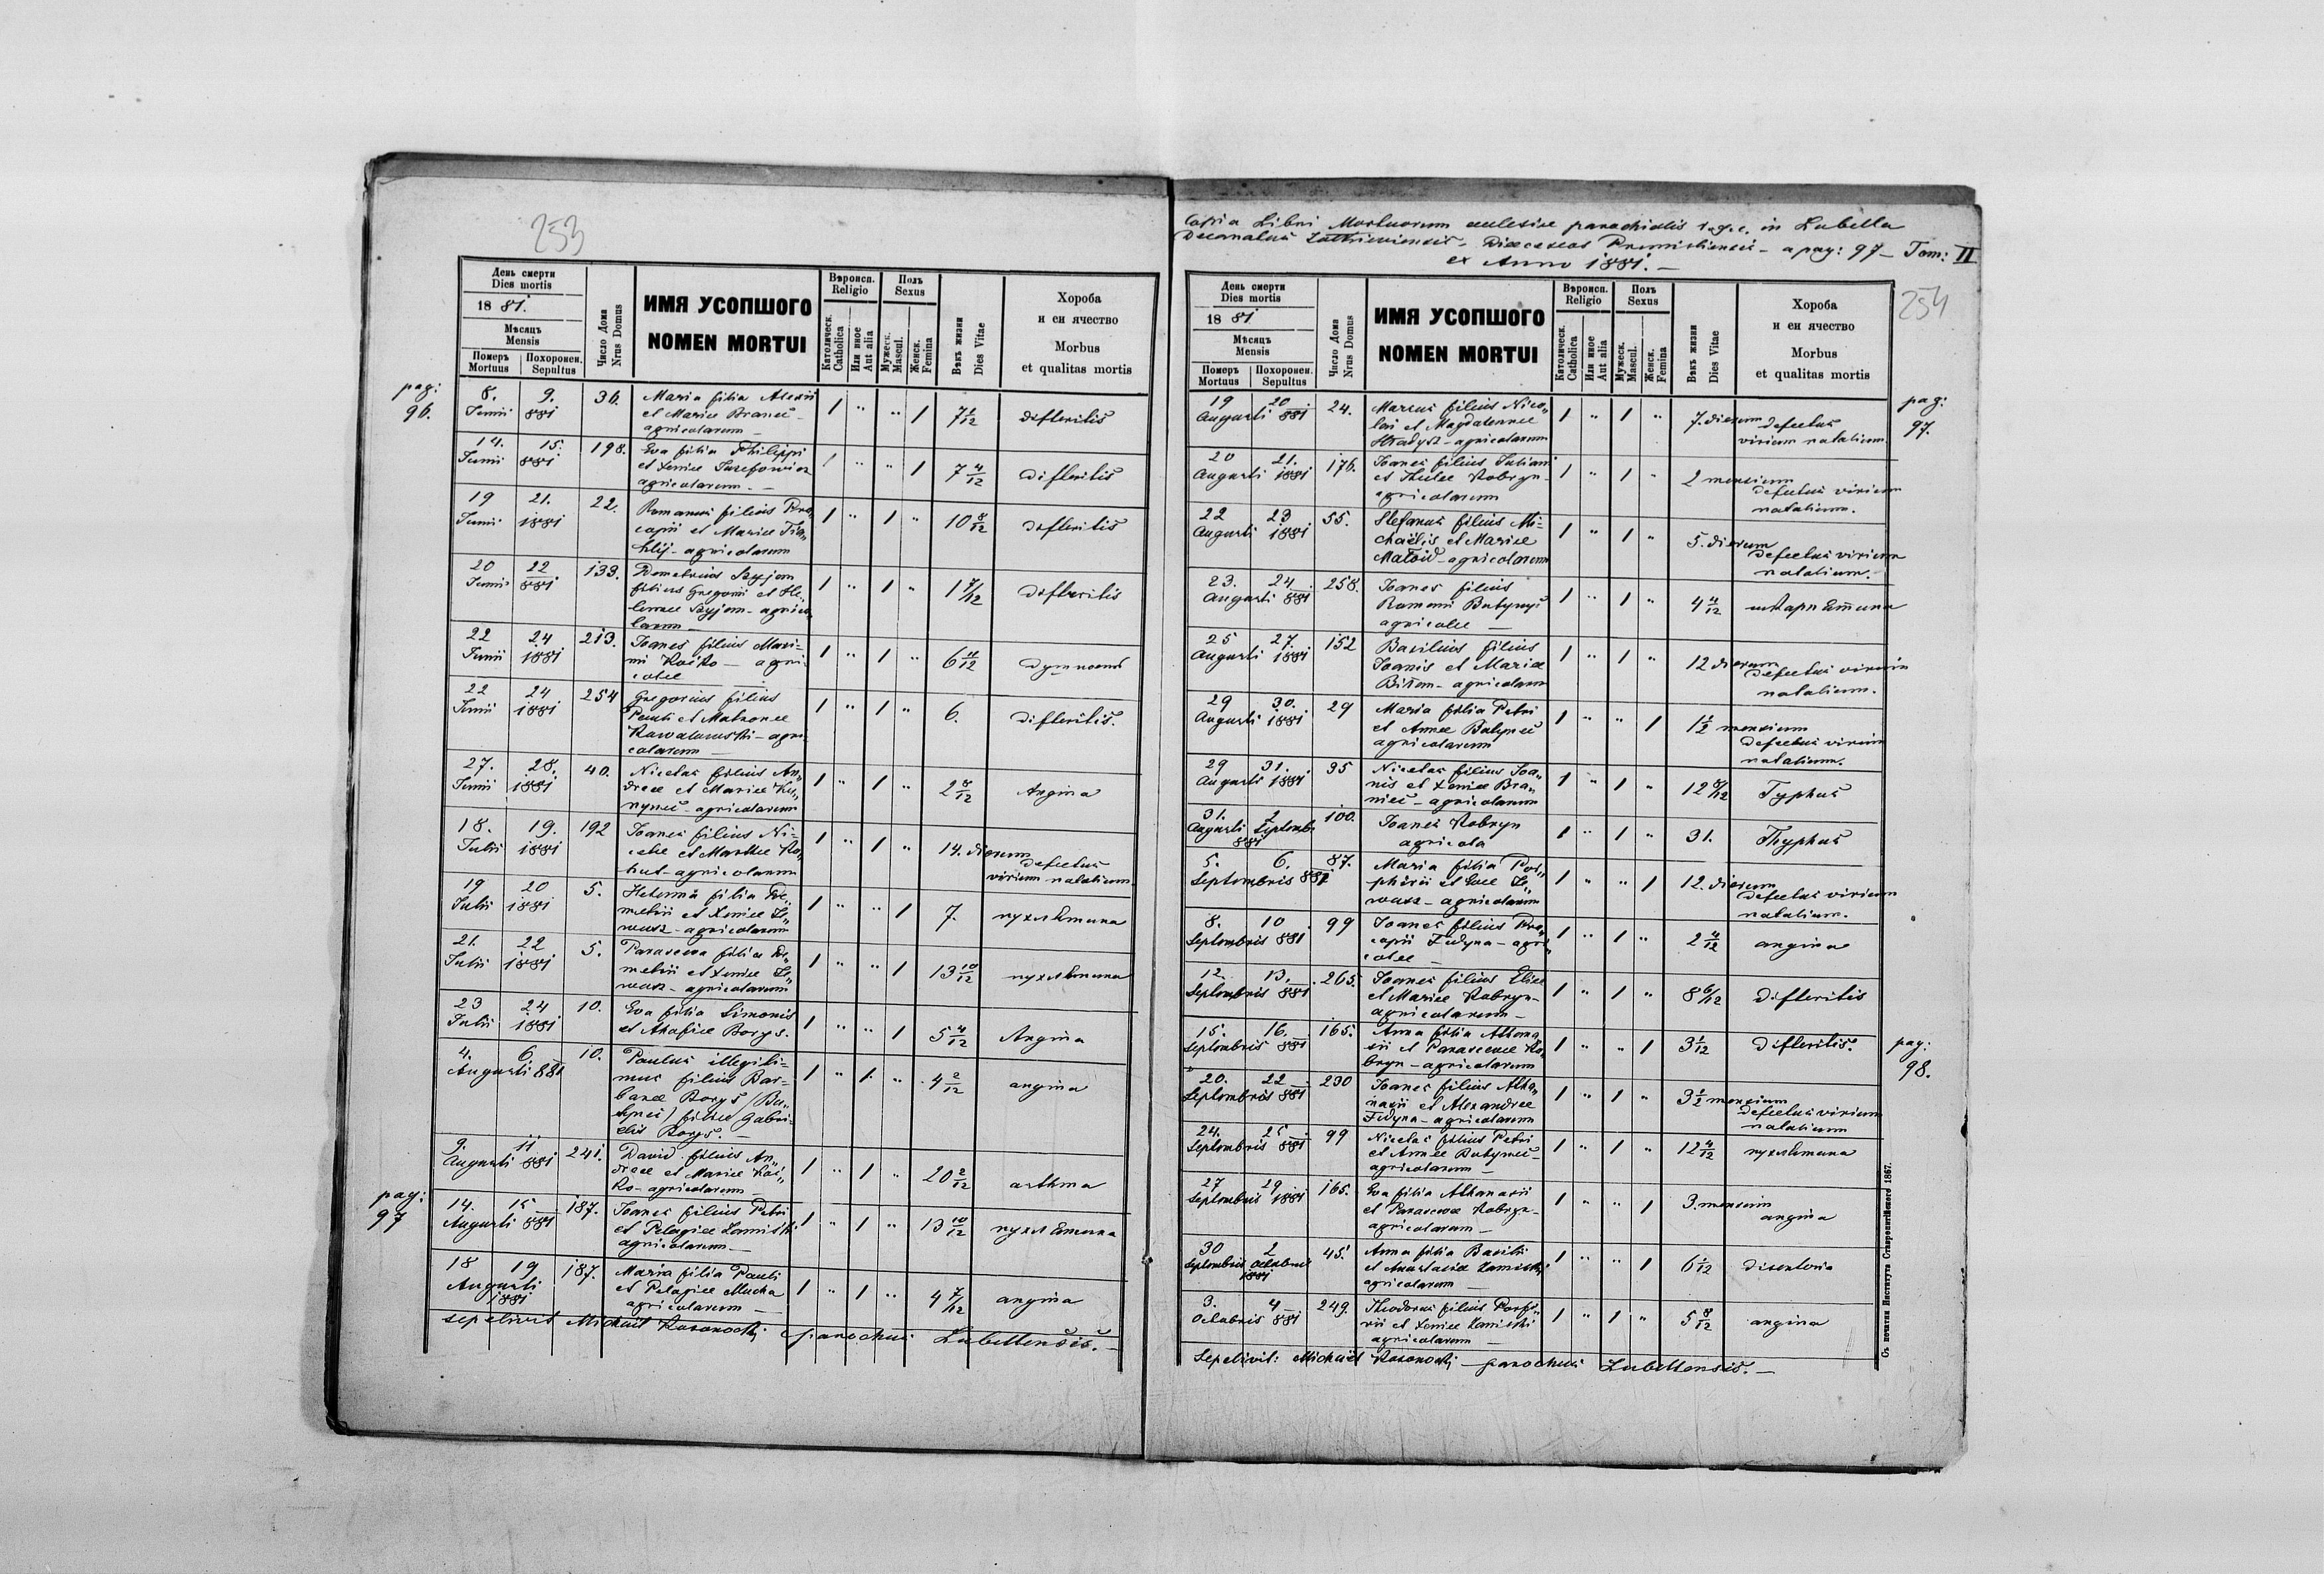 253
День смерти
Dies mortis
1881.
Мѣсяцъ
Mensis
Померъ
Mortuus
Похоронен.
Sepultus
Число Дома
Nrus Domus
ИМЯ УСОПШОГО
NOMEN MORTUI
Вѣроисп.
Religio
Католическ.
Catholica
Или иное
Aut alia
Полъ
Sexus
Мужеск.
Mascul.
Женск.
Femina
Вѣкъ жизни
Dies Vitae
Хороба
и еи ячество
Morbus
et qualitas mortis
pag:
96.
8. 9. 36. Maria filia Alexii
Junii 881 et Mariae 1 " " 1 7 1/12 difteritis
agricolarum
14. 15. 198. Eva filia Philippi
Junii 881 et Xeniae Juzefowicz 1 " " 1 7 4/12 difteritis
agricolarum
19 21. 22. Romanus filius Pro„
Junii 1881 copii et Mariae 1 " 1 " 10 8/12 difteritis
agricolarum
20 22 133. Demetrius Szyjom
Junii 881 filius Gregorii et He„ 1 " 1 " 1 7/12 difteritis
lenae Szyjom - agrico„
larum
22 24 213. Joanes filius Maxi=
Junii 1881 mi Kośko - agri= 1 " 1 " 6
colae
22 24 254 Gregorius filius
Junii 1881 Pauli et Matronae 1 " 1 " 6. difteritis.
agri=
colarum
27. 28. 40. Nicolas filius An„
Junii 1881 dreae et Mariae 1 " 1 " 2 8/12 Angina
agricolarum
18. 19. 192 Joanes filius Ni=
Julii 1881 et Marthae Ko„ 1 " 1 " 14. dierum defectus
hut - agricolarum virium natalium
19 20 5. Helenna filia De„
Julii 1881 metrii et Xeniae Le„ 1 " " 1 7. пухлѣтина
wusz - agricolarum
21. 22 5. Parascewa filia De„
Julii 1881 metrii et Xeniae Le„ 1 " " 1 13 10/12 пухлѣтина
wusz - agricolarum
23 24 10. Eva filia Simonis
Julii 1881 et Borys. 1 " " 1 5 4/12 Angina
4. 6. 10. Paulus illegiti=
Augusti 881 mus filius Bar= 1 " 1 " 4 2/12 angina
barae Borys (Ba„
filiae Gabri=
elis Borys.
9. 11 241. David filius An„
Augusti 881 dreae et Mariae Koś„ 1 " 1 " 20 2/12 asthma
ko - agricolarum
pag:
97
14. 15 187. Joanes filius Petri
Augusti 881 et Pelagiae 1 " 1 " 13 10/12 пухлѣтина
agricolarum
18 19 187. Maria filia Pauli
Augusti et Pelagiae Mucha 1 " 1 " 4 7/12 angina
1881 agricolarum
sepelivit Michaël parochus Lubellensis.
Copia Libri Mortuorum ecclesiae parochialis r.g.c. in Lubella
Decanatus - Dioeceseos Premisliensis - a pag: 97 - Tom: II
ex Anno 1881.
254
День смерти
Dies mortis
1881
Мѣсяцъ
Mensis
Померъ
Mortuus
Похоронен.
Sepultus
Число Дома
Nrus Domus
ИМЯ УСОПШОГО
NOMEN MORTUI
Вѣроисп.
Religio
Католическ.
Catholica
Или иное
Aut alia
Полъ
Sexus
Мужеск.
Mascul.
Женск.
Femina
Вѣкъ жизни
Dies Vitae
Хороба
и еи ячество
Morbus
et qualitas mortis
pag:
97.
19 20 24. Marcus filius Nico„
Augusti 881 lai et Magdalennae 1 " 1 " 7. dierum defectus
agricolarum virium natalium
20 21. 176. Joanes filius Juliani
Augusti 1881 et Kobryn 1 " 1 " 2 mensium defectus virium
agricolarum natalium.
22 23 55. Stefanus filius Mi=
Augusti 1881 chaëlis et Mariae 1 " 1 " 5. dierum defectus virium
agricolarum natalium.
23. 24 258. Joanes filius
Augusti 881 Romani 1 " 1 " 4
agricolae
25 27. 152 Basilius filius
Augusti 1881 Joanis et Mariae 1 " 1 " 12 dierum defectus virium
agricolarum natalium.
29 30. 29 Maria filia Petri
Augusti 1881 et Annae 1 " " 1 1 1/2 mensium defectus virium
agricolarum natalium.
29 31. 35 Nicolas filius Joa„
Augusti 1881 nis et Xeniae 1 " 1 " 12 8/12 Typhus
agricolarum
31. 2 100. Joanes Kobryn
Augusti Septemb. agricola 1 " 1 " 31. Thyphus
881
5. 6. 87. Maria filia Por„
Septembris 881 phirii et Evae Le„ 1 " " 1 12. dierum defectus virium
wusz - agricolarum natalium.
8. 10 99 Joanes filius Pro„
Septembris 881 copii Fedyna - agri„ 1 " 1 " 2 4/12 angina
colae
12. 13. 265. Joanes filius Eliae
Septembris 881 et Mariae Kobryn 1 " 1 " 8 6/12 difteritis
agricolarum
pag:
98.
15. 16. 165. Anna filia Athana„
Septembris 881 sii et Parascevae Ko„ 1 " " 1 3 1/12 difteritis.
bryn - agricolarum
20. 22 230 Joanes filius Atha„
Septembris 881 nasii et Alexandrae 1 " 1 " 3 1/2 mensium defectus virium
Fedyna - agricolarum natalium
24. 25 99 Nicolas filius Petri
Septembris 881 et Annae 1 " 1 " 12 4/12 пухлѣтина
agricolarum
27 29 165. Eva filia Athanasii
Septembris 1881 et Parascevae Kobryn 1 " " 1 3. mensium angina
agricolarum
30 2 45. Anna filia Basilii
Septembris Octobris et Anastasiae 1 " " 1 6 1/12
1881 agricolarum
3. 4 249. Theodorus filius Porfi„
Octobris 881 rii et Xeniae 1 " 1 " 5 8/12 angina
agricolarum
Sepelivit: Michaël parochus Lubellensis.
Съ печатни Института Ставропигійского 1867.